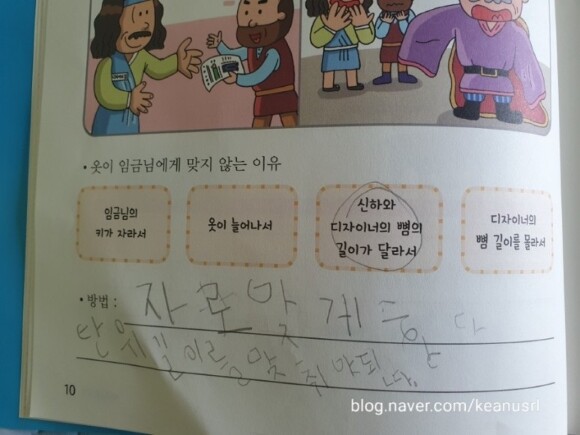 • 옷이 임금님에게 맞지 않는 이유
임금님의
키가 자라서
옷이 늘어나서
신하와
디자이너의 뼘의
길이가 달라서
디자이너의
뼘 길이를 몰라서
• 방법 : 자로 맞게 한다
단위길이를 맞춰야된다.
10
blog.naver.com/keanusrl